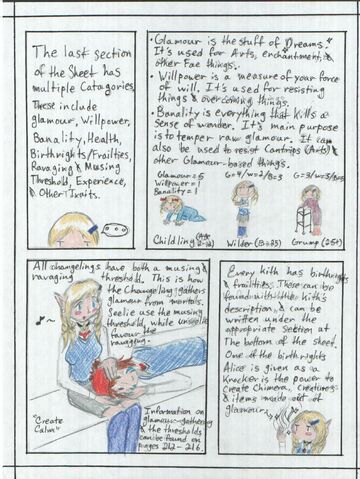 The last section
of the Sheet has
multiple Catagories.
These include
glamour, Willpower,
Banality, Health,
Birthrights/Frailties,
Ravaging & Musing
Threshold, Experience,
& Other Traits.
...
• Glamour is the stuff of "Dreams."
It's used for Arts, enchantment, &
other Fae things.
• Willpower is a measure of your force
of will. It's used for resisting
things & overcoming things.
• Banality is everything that kills a
sense of wonder. It's main purpose
is to temper raw glamour. It can
also be used to resist Cantrips (Arts) &
other Glamour-based things.
Glamour=5
Willpower=1
Banality=1
G=4/W=2/B=3
G=3/W=
Childling
Wilder
Grump (25+)
All changelings have both a musing &
ravaging threshold. This is how
the Changeling gathers
glamour from mortals.
Seelie use the musing
threshold, while unseelie
favour the
ravaging.
"Create
Calm"
Information on
glamour-gathering
& the thresholds
can be found on
pages 212-216.
Every kith has birthrights
& frailities. These can too
found with the kith's
description, & can be
written under the
appropriate section at
The bottom of the sheet.
One of the birthrights
Alice is given as a
Knocker is the power to
create Chimera, creatures
& items made out of
glamour.